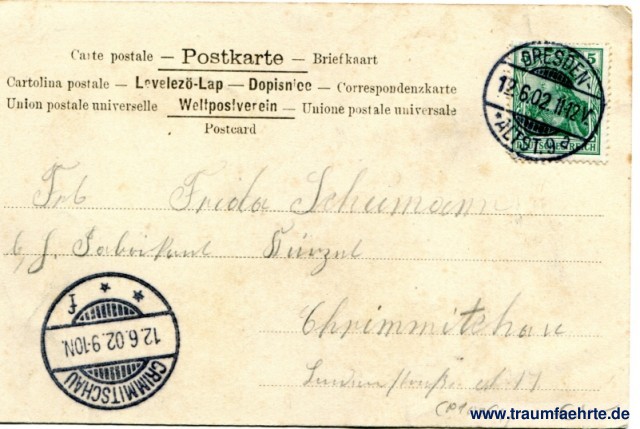 Carte postale — Postkarte — Briefkaart
Cartolina postale — Levelezö-Lap — Dopisnice — Correspondenzkarte
Union postale universelle Weltpostverein — Unione postale universale
Postcard
DRESDEN
12.6.02.11-12V.
*ALTST.9 d
5
DEUTSCHES REICH
Frl Frida Schumann
Fabrikant Kürzel
Chrimmitschau
12.6.02.9-10N.
CRIMMITSCHAU
www.traumfaehrte.de